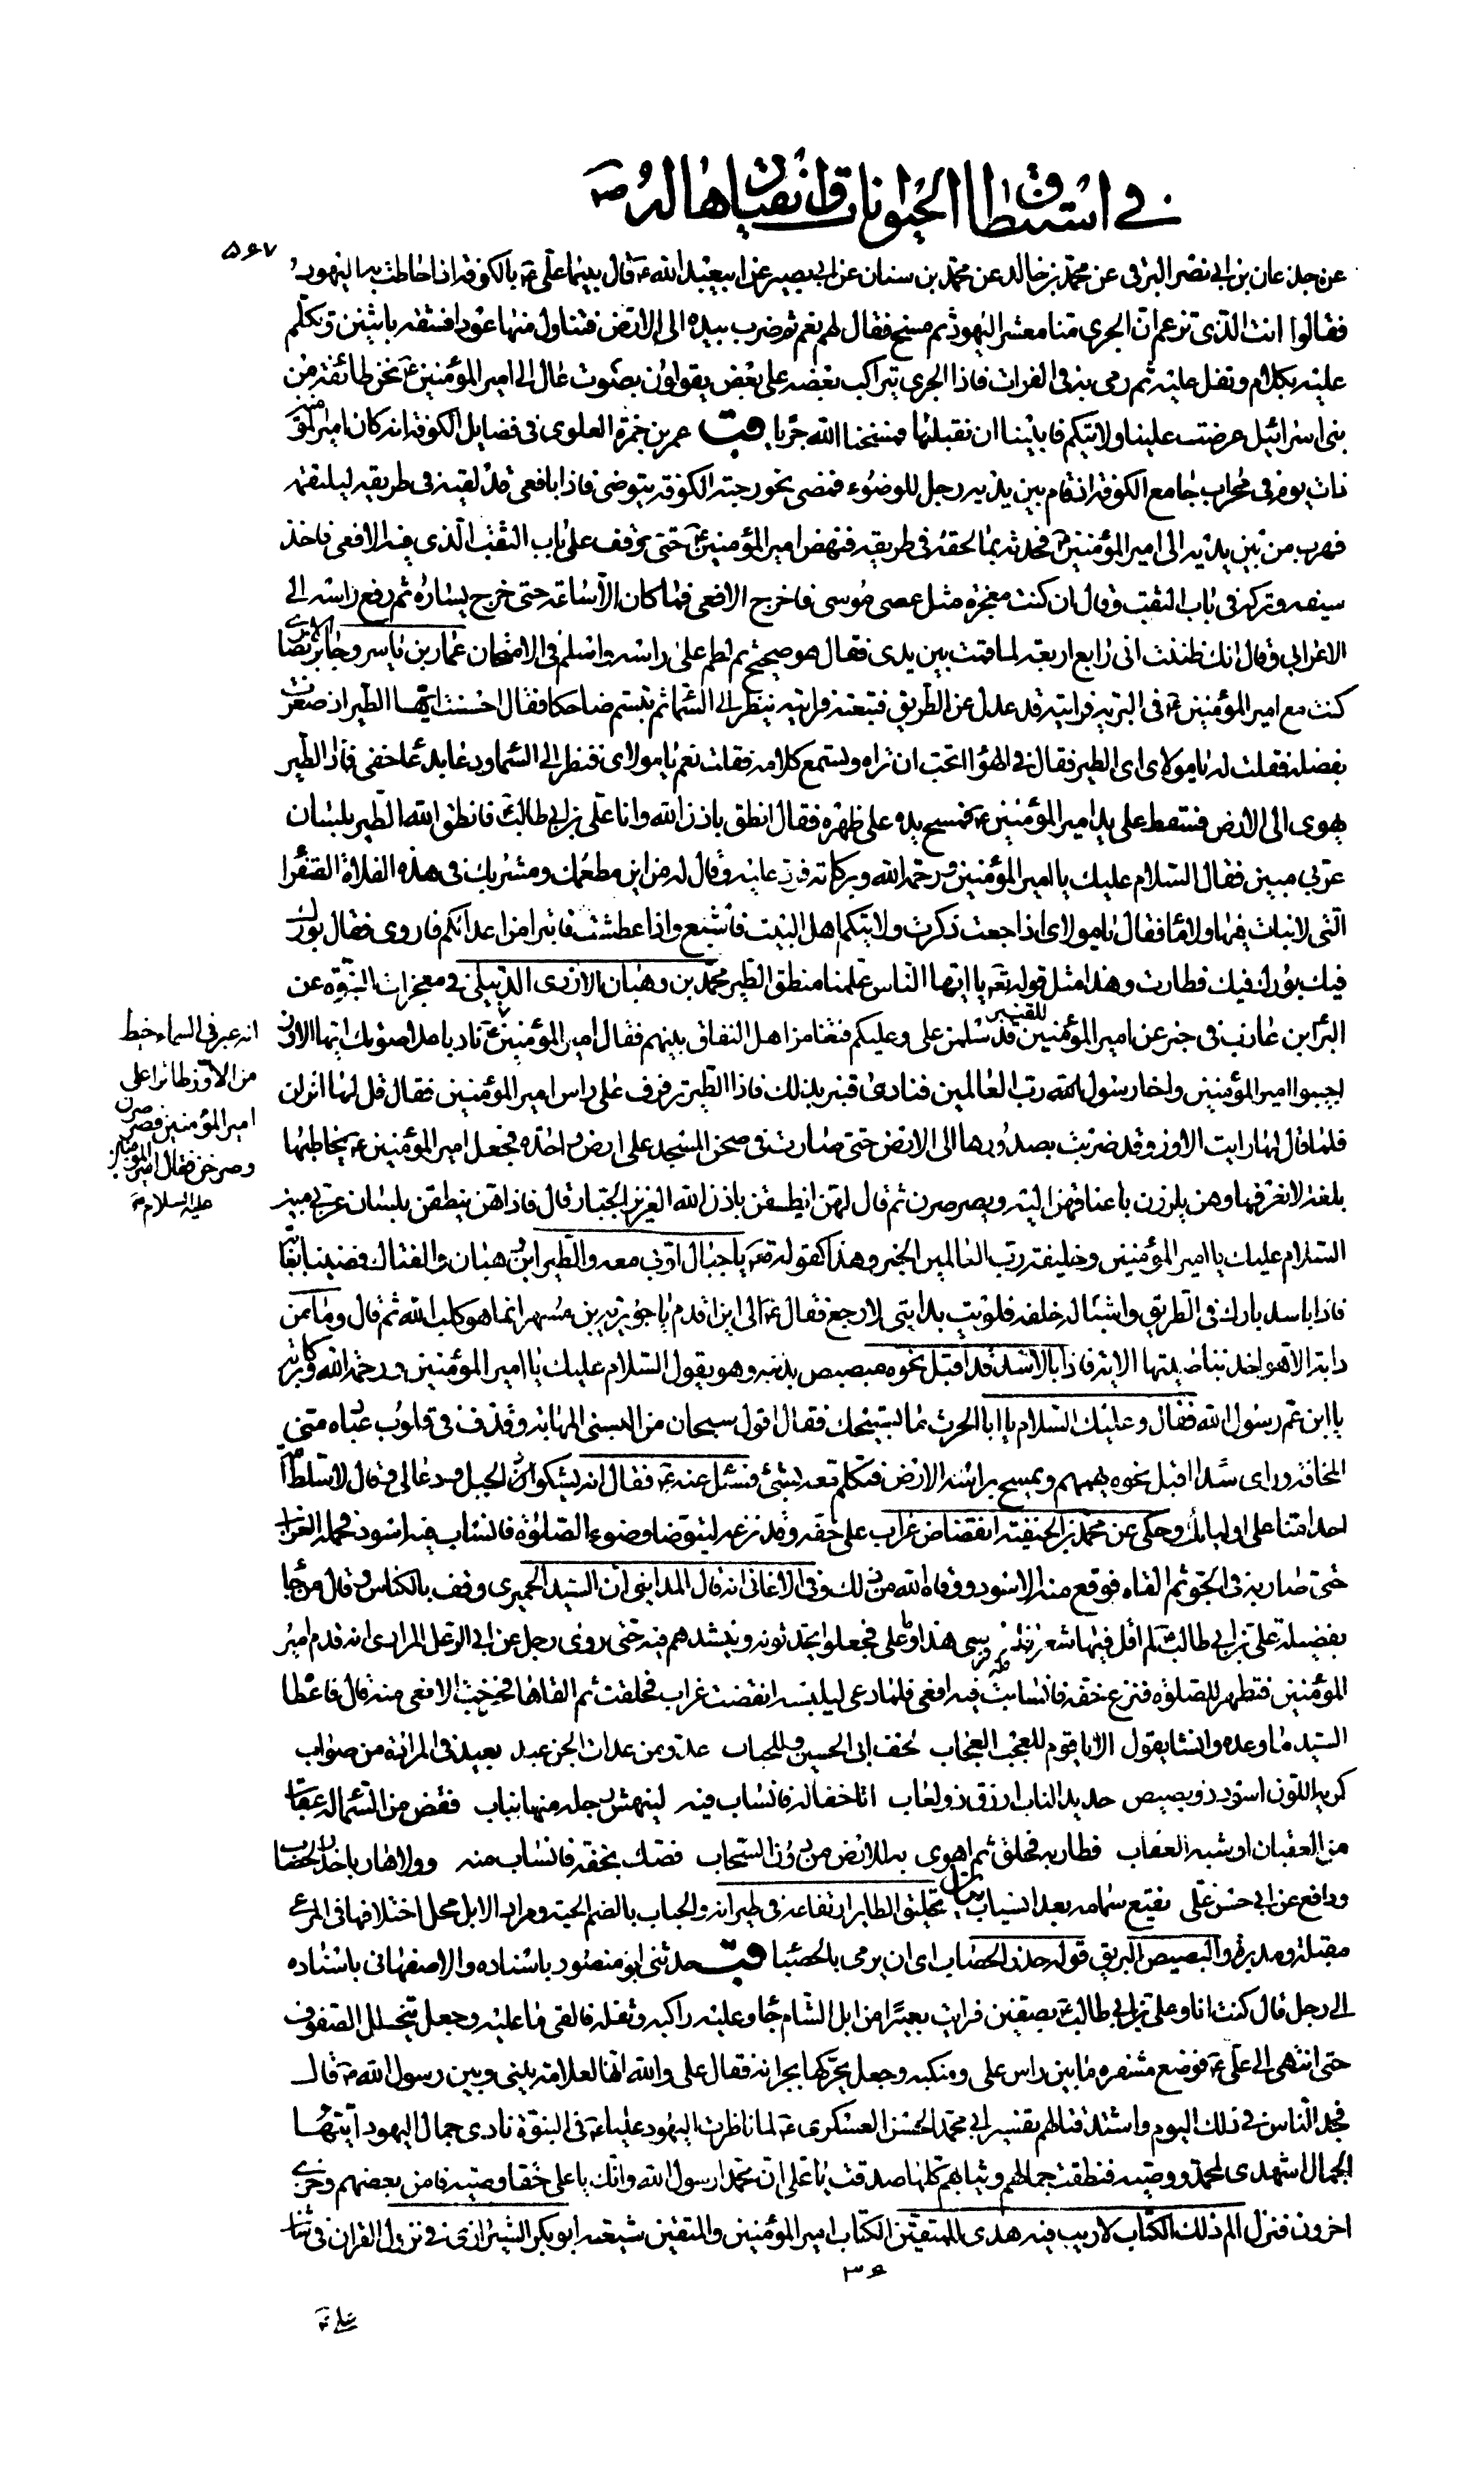 في استنطاق الحيوانات وانقيادها له ص
٥٦٧
عن جذعان بن ابي نصر البرقي عن محمد بن خالد عن محمد بن سنان عن ابي بصير عن ابيعبد الله ع قال بينما علي ع بالكوفة اذا حاطت به اليهود
فقالوا انت الذي تزعم ان الجري منا معشر اليهود ثم مسخ فقال لهم نعم ثم ضرب بيده الى الارض فتناول منها عودا فشقه باثنين وتكلم
عليه بكلام وتفل عليه ثم رمى به في الفرات فاذا الجري يتراكب بعضه على بعض يقولون بصوت عال الى امير المؤمنين ع نحن طائفة من
بني اسرائيل عرضت علينا ولايتكم فابينا ان نقبلها فمسخنا الله جريا قب عمر بن حمزة العلوي في فضايل الكوفة انه كان امير المؤمنين
ذات يوم في محراب جامع الكوفة اذ قام بين يديه رجل للوضوء فمضى نحو رحبة الكوفة يتوضى فاذا بافعى قد لقيه في طريقه ليلتقمه
فهرب من بين يديه الى امير المؤمنين ع فحدثه بما لحقه في طريقه فنهض امير المؤمنين ع حتى وقف على باب النقب الذي فيه الافعى فاخذ
سيفه وتركه في باب النقب وقال ان كنت معجزة مثل عصى موسى فاخرج الافعى فما كان الا ساعة حتى خرج يساره ثم رفع راسه الى
الاعرابي وقال انك ظننت اني رابع اربعة لما قمت بين يدي فقال هو صحيح ثم لطم على راسه واسلم في الامتحان عمار بن ياسر وجابر الانصاري
كنت مع امير المؤمنين ع في البرية فرايته قد عدل عن الطريق فتبعته فرايته ينظر الى السما ثم تبسم ضاحكا فقال احسنت ايها الطير اذ صفرت
بفضله فقلت له يا مولاي اي الطير فقال في الهوا اتحب ان تراه وتسمع كلامه فقلت نعم يا مولاي فنظر الى السما ودعا بدعا خفي فاذا الطير
يهوي الى الارض فسقط على يد امير المؤمنين ع فمسح يده على ظهره فقال انطق باذن الله وانا علي بن ابي طالب فانطق الله الطير بلسان
عربي مبين فقال السلام عليك يا امير المؤمنين ورحمة الله وبركاته فرد عليه وقال له من اين مطعمك ومشربك في هذه الفلاة القفرا
التي لا نبات فيها ولا ما فقال يا مولاي اذا جعت ذكرت ولايتكم اهل البيت فاشبع واذا عطشت فاتبرا من اعدائكم فاروى فقال بورك
فيك بورك فيك فطارت وهذا مثل قوله تع يا ايها الناس علمنا منطق الطير محمد بن وهبان الازدي الدبيلي في معجزات النبوة عن
البرا ابن عازب في خبر عن امير المؤمنين قد سلمن علي وعليكم فتغامز اهل النفاق بينهم فقال امير المؤمنين ع ناد باعلا صوتك ايها الاوز
للقنبر
انه عبر في السماء خيط
من الاوز طائرا على
امير المؤمنين فصرصرن
وصرخن فقال امير المؤمنين
عليه السلام ص
اجيبوا امير المؤمنين واخا رسول الله رب العالمين فنادى قنبر بذلك فاذا الطير ترفرف على راس امير المؤمنين فقال قل لها انزلن
فلما قال لها رايت الاوز وقد ضربت بصدورها الى الارض حتى صارت في صحن المسجد على ارض واحدة فجعل امير المؤمنين ع يخاطبها
بلغة لا نعرفها وهن يلززن باعناقهن اليه ويصرصرن ثم قال لهن انطقن باذن الله العزيز الجبار قال فاذا هن ينطقن بلسان عربي مبين
السلام عليك يا امير المؤمنين وخليفة رب العالمين الخبر وهذا كقوله تع يا جبال اوبي معه والطير ابن وهبان والفتاك فمضينا بغابة
فاذا باسد بارك في الطريق واشباله خلفه فلويت بدابتي لارجع فقال ع الى اين اقدم يا جويرية بن مسهر انما هو كلب الله ثم قال وما من
دابة الا هو اخذ بناصيتها الاية فاذا بالاسد قد اقبل نحوه يبصبص بذنبه وهو يقول السلام عليك يا امير المؤمنين ورحمة الله وبركاته
يا ابن عم رسول الله فقال وعليك السلام يا ابا الحرث ما تسبيحك فقال اقول سبحان من البسني المهابة وقذف في قلوب عباده مني
المخافة وراى اسدا اقبل نحوه يهمهم ويمسح براسه الارض فتكلم معه بشئ فسئل عنه ع فقال انه يشكو الحبل ودعا لي وقال لا سلط الله
احدا منا على اوليائك وحكي عن محمد بن الحنفية انقضاض غراب على خفه وقد نزعه ليتوضا وضوء الصلوة فانساب فيه اسود فحمله الغراب
حتى صار به في الجو ثم القاه فوقع منه الاسود ووقاه الله من ذلك وفي الاغاني انه قال المدايني ان السيد الحميري وقف بالكناس وقال من جا
بفضيلة علي بن ابي طالب لم اقل فيها شعرا فله فرسي هذا وما علي فجعلوا يحدثونه وينشدهم فيه حتى روى رجل عن ابي الرعل المرادي انه قدم امير
المؤمنين فتطهر للصلوة فنزع خفه فانسابت فيه افعى فلما دعى ليلبسه انقضت غراب فحلقت ثم القاها فخرجت الافعى منه قال فاعطا
السيد ما وعده وانشا يقول الا يا قوم للعجب العجاب لخف ابي الحسين وللحباب عدو من عدات الجن عبد بعيد في المرادة من صواب
كريه اللون اسود ذو بصيص حديد الناب ازرق ذو لعاب اتا خفا له فانساب فيه لينهش رجله منها بناب فقض من السما له عقاب
من العقبان او شبه العقاب فطار به فحلق ثم اهوى به للارض من دون السحاب فصك بخفه فانساب منه وولا هاربا حذر الحصاب
ودافع عن ابي حسن علي نقيع سمامه بعد انسياب بيان تحليق الطاير ارتفاعه في طيرانه والحباب بالضم الحية ومراد الابل محل اختلافها في المرعى
مقبلة ومدبرة والبصيص البريق قوله حذر الحصاب اي ان يرمى بالحصبا قب حدثني ابو منصور باسناده والاصفهاني باسناده
الى رجل قال كنت انا وعلي بن ابي طالب ع بصفين فرايت بعيرا من ابل الشام جا وعليه راكبه وثقله فالقى ما عليه وجعل يتخلل الصفوف
حتى انتهى الى علي ع فوضع مشفره ما بين راس علي ومنكبه وجعل يحركها بجرانه فقال علي والله انها لعلامة بيني وبين رسول الله ص قال
فجد الناس في ذلك اليوم واشتد قتالهم تفسير ابي محمد الحسن العسكري ع لما ناظرت اليهود عليا ع في النبوة نادى جمال اليهود ايتها
الجمال اشهدي لمحمد ووصيه فنطقت جمالهم وثيابهم كلها صدقت يا علي ان محمدا رسول الله وانك يا علي حقا وصيه فامن بعضهم وخزي
اخرون فنزل الم ذلك الكتاب لا ريب فيه هدى للمتقين الكتاب امير المؤمنين والمتقين شيعته ابو بكر الشيرازي في نزول القران في شان
٣٦
علي ع